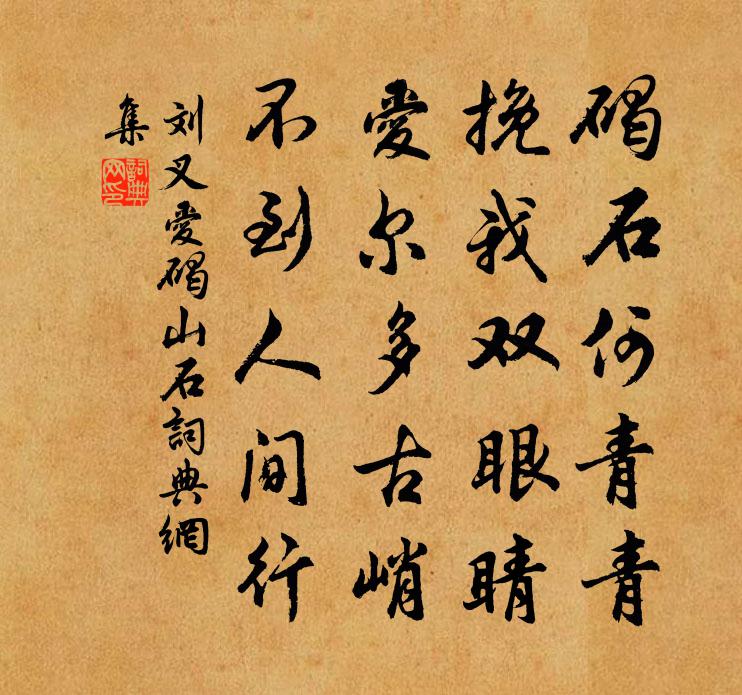 碣石何青青
挽我双眼睛
愛尔多古峭
不到人间行
刘叉愛碣山石詞典網
集
詞典
网印